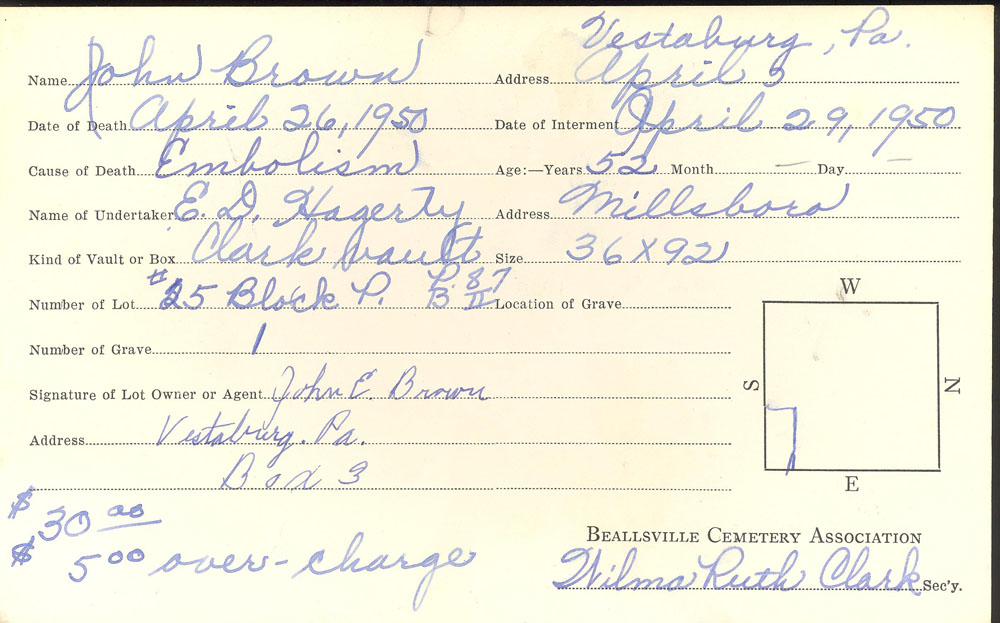 Vestaburg, Pa.
Name John Brown Address April 5
Date of Death April 26, 1950 Date of Interment April 29, 1950
Cause of Death Embolism Age:—Years 52 Month — Day —
Name of Undertaker E. D. Hagerty Address Millsboro
Kind of Vault or Box Clark Vault Size 36 X 92
P. 87
Number of Lot #25 Block P. B. II Location of Grave
W
Number of Grave 1
S N
Signature of Lot Owner or Agent John E. Brown
Address Vestaburg. Pa.
Box 3
E
$30 00
BEALLSVILLE CEMETERY ASSOCIATION
$5 00 over-charge
Wilma Ruth Clark Sec'y.